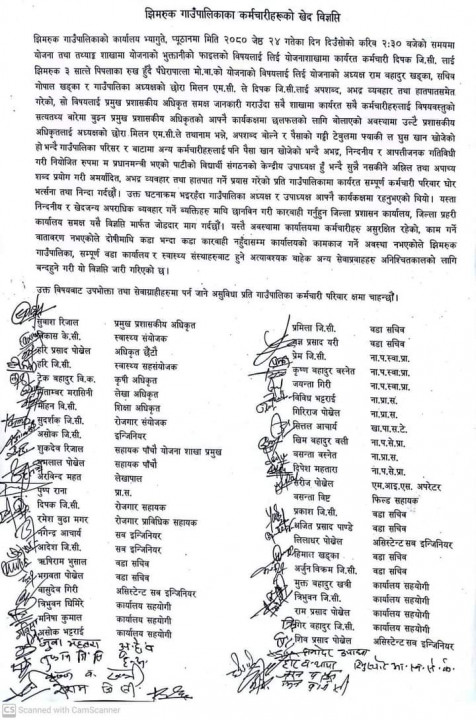 झिमरुक गाउँपालिकाका कर्मचारीहरूको खेद विज्ञप्ति
झिमरुक गाउँपालिकाको कार्यालय भ्यागुते, प्यूठानमा मिति २०८० जेष्ठ २४ गतेका दिन दिउँसोको करिव २:३० बजेको समयमा
योजना तथा तथ्याङ्क शाखामा योजनाको भुक्तानीको फाइलको विषयलाई लिई योजनाशाखामा कार्यरत कर्मचारी दिपक जि.सी. लाई
झिमरुक ३ साल्ने पिपलाका रुख हुँदै पँधेरापाल्मा मो.बा.को योजनाको विषयलाई लिई योजनाको अध्यक्ष राम बहादुर खड्का, सचिव
गोपाल खड्का र गाउँपालिका अध्यक्षको छोरा मिलन एम.सी. ले दिपक जि.सी.लाई अपशब्द, अभद्र व्यवहार तथा हातपातसमेत
गरेको, सो विषयलाई प्रमुख प्रशासकीय अधिकृत समक्ष जानकारी गराउँदा सबै शाखामा कार्यरत सबै कर्मचारीहरूलाई विषयवस्तुको
सत्यतथ्य बारेमा बुझ्न प्रमुख प्रशासकीय अधिकृतको आफ्नै कार्यकक्षमा छलफलको लागि बोलाएको अवस्थामा उल्टै प्रशासकीय
अधिकृतलाई अध्यक्षको छोरा मिलन एम.सी.ले तथानाम भन्ने, अपशब्द बोल्ने र पैसाको गड्डी टेबुलमा फ्याकी ल घुस खान खोजेको
हो भन्दै गाउँपालिका परिसर र बाटामा अन्य कर्मचारीहरूलाई पनि पैसा खान खोजेको भन्दै अभद्र, निन्दनीय र आपत्तीजनक गतिविधी
गरी नियोजित रुपमा म प्रधानमन्त्री भएको पार्टीको विद्यार्थी संगठनको केन्द्रीय उपाध्यक्ष हुँ भन्दै सुन्नै नसकीने अश्लिल तथा अपाच्य
शब्द प्रयोग गरी अमर्यादित, अभद्र व्यवहार तथा हातपात गर्ने प्रयास गरेको प्रति गाउँपालिकामा कार्यरत सम्पूर्ण कर्मचारी परिवार घोर
भर्त्सना तथा निन्दा गर्दछौं। उक्त घटनाक्रम भइरहँदा गाउँपालिका अध्यक्ष र उपाध्यक्ष आफ्नै कार्यकक्षमा रहनुभएको थियो। यस्ता
निन्दनीय र खेदजन्य अपराधिक व्यवहार गर्ने व्यक्तिहरू माथि छानविन गरी कारवाही गर्नुहुन जिल्ला प्रशासन कार्यालय, जिल्ला प्रहरी
कार्यालय समक्ष यसै विज्ञप्ति मार्फत जोडदार माग गर्दछौं। यस्तै अवस्थामा कार्यालयमा कर्मचारीहरू असुरक्षित रहेको, काम गर्ने
वातावरण नभएकोले दोषीमाथि कडा भन्दा कडा कारवाही नहुँदासम्म कार्यालयको कामकाज गर्ने अवस्था नभएकोले झिमरुक
गाउँपालिका, सम्पूर्ण वडा कार्यालय र स्वास्थ्य संस्थाहरूबाट हुने अत्यावश्यक बाहेक अन्य सेवाप्रवाहहरु अनिश्चितकालको लागि
बन्दहुने गरी यो विज्ञप्ति जारी गरिएको छ।
उक्त विषयबाट उपभोक्ता तथा सेवाग्राहीहरुमा पर्न जाने असुविधा प्रति गाउँपालिका कर्मचारी परिवार क्षमा चाहन्छौं।
सुवारा रिजाल प्रमुख प्रशासकीय अधिकृत
विकास के.सी. स्वास्थ्य संयोजक
हरि प्रसाद पोख्रेल अधिकृत छैटौं
हरि जि.सी. स्वास्थ्य सहसंयोजक
टेक बहादुर बि.क. कृषी अधिकृत
पिताम्बर मरासिनी लेखा अधिकृत
मोहन बि.सी. शिक्षा अधिकृत
सुदर्शक जि.सी. रोजगार संयोजक
असोक जि.सी. इन्जिनियर
शुकदेव रिजाल सहायक पाँचौ योजना शाखा प्रमुख
पोख्रेल सहायक पाँचौ
अरविन्द महत लेखापाल
पुष्प राना प्रा.स.
दिपक जि.सी. रोजगार सहायक
रमेश बुढा मगर रोजगार प्राविधिक सहायक
नगेन्द्र आचार्य सव इन्जिनियर
आदेश जि.सी. सव इन्जिनियर
ऋषिराम भुसाल वडा सचिव
भगवता पोख्रेल वडा सचिव
बासुदेव गिरी असिस्टेन्ट सव इन्जिनियर
त्रिभुवन घिमिरे कार्यालय सहयोगी
मनिषा कुमाल कार्यालय सहयोगी
असोक भट्टराई कार्यालय सहयोगी
प्रमिला जि.सी. वडा सचिव
प्रसाद यरी वडा सचिव
प्रेम जि.सी. ना.प.स्वा.प्रा.
कृष्ण बहादुर बस्नेत ना.प.स्वा.प्रा.
जयन्ता गिरी ना.प.स्वा.प्रा.
विविधि भट्टराई ना.प्रा.स.
गिरिराज पोख्रेल ना.प्रा.स.
आचार्य खा.पा.स.टे.
खिम बहादुर वली ना.प.से.प्रा.
वसन्ता बस्नेत ना.प्रा.स.
दिपेश महतारा ना.प.से.प्रा.
सरोज पोख्रेल एम.आइ.एस. अपरेटर
वसन्ता विष्ट फिल्ड सहायक
प्रकाश जि.सी. वडा सचिव
प्रसाद पाण्डे वडा सचिव
लिलाधर पोख्रेल असिस्टेन्ट सव इन्जिनियर
हिमाल खड्का वडा सचिव
अर्जुन विक्रम जि.सी. वडा सचिव
मुक्त बहादुर खत्री कार्यालय सहयोगी
त्रिभुवन जि.सी. कार्यालय सहयोगी
राम प्रसाद पोख्रेल कार्यालय सहयोगी
बहादुर जि.सी. कार्यालय सहयोगी
शिव प्रसाद पोख्रेल असिस्टेन्ट सव इन्जिनियर
CS Scanned with CamScanner